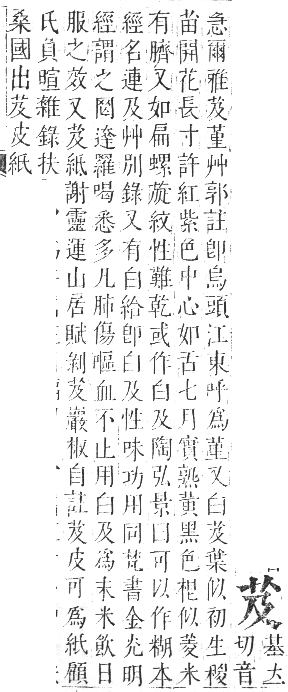 芨
基立
切音
急爾雅芨堇艸郭註卽烏頭江東呼爲堇又白芨葉似初生椶
苗開花長寸許紅紫色中心如舌七月實熟黃黑色根似菱米
有臍又如扁螺旋紋性難乾或作白及陶弘景曰可以作糊本
經名連及艸別錄又有白給卽白及性味功用同梵書金光明
經謂之罔達羅喝悉多凡肺傷嘔血不止用白及爲末米飲日
服之效又芨紙謝靈運山居賦剝芨巖椒自註芨皮可爲紙顧
氏負暄雜錄扶
桑國出芨皮紙